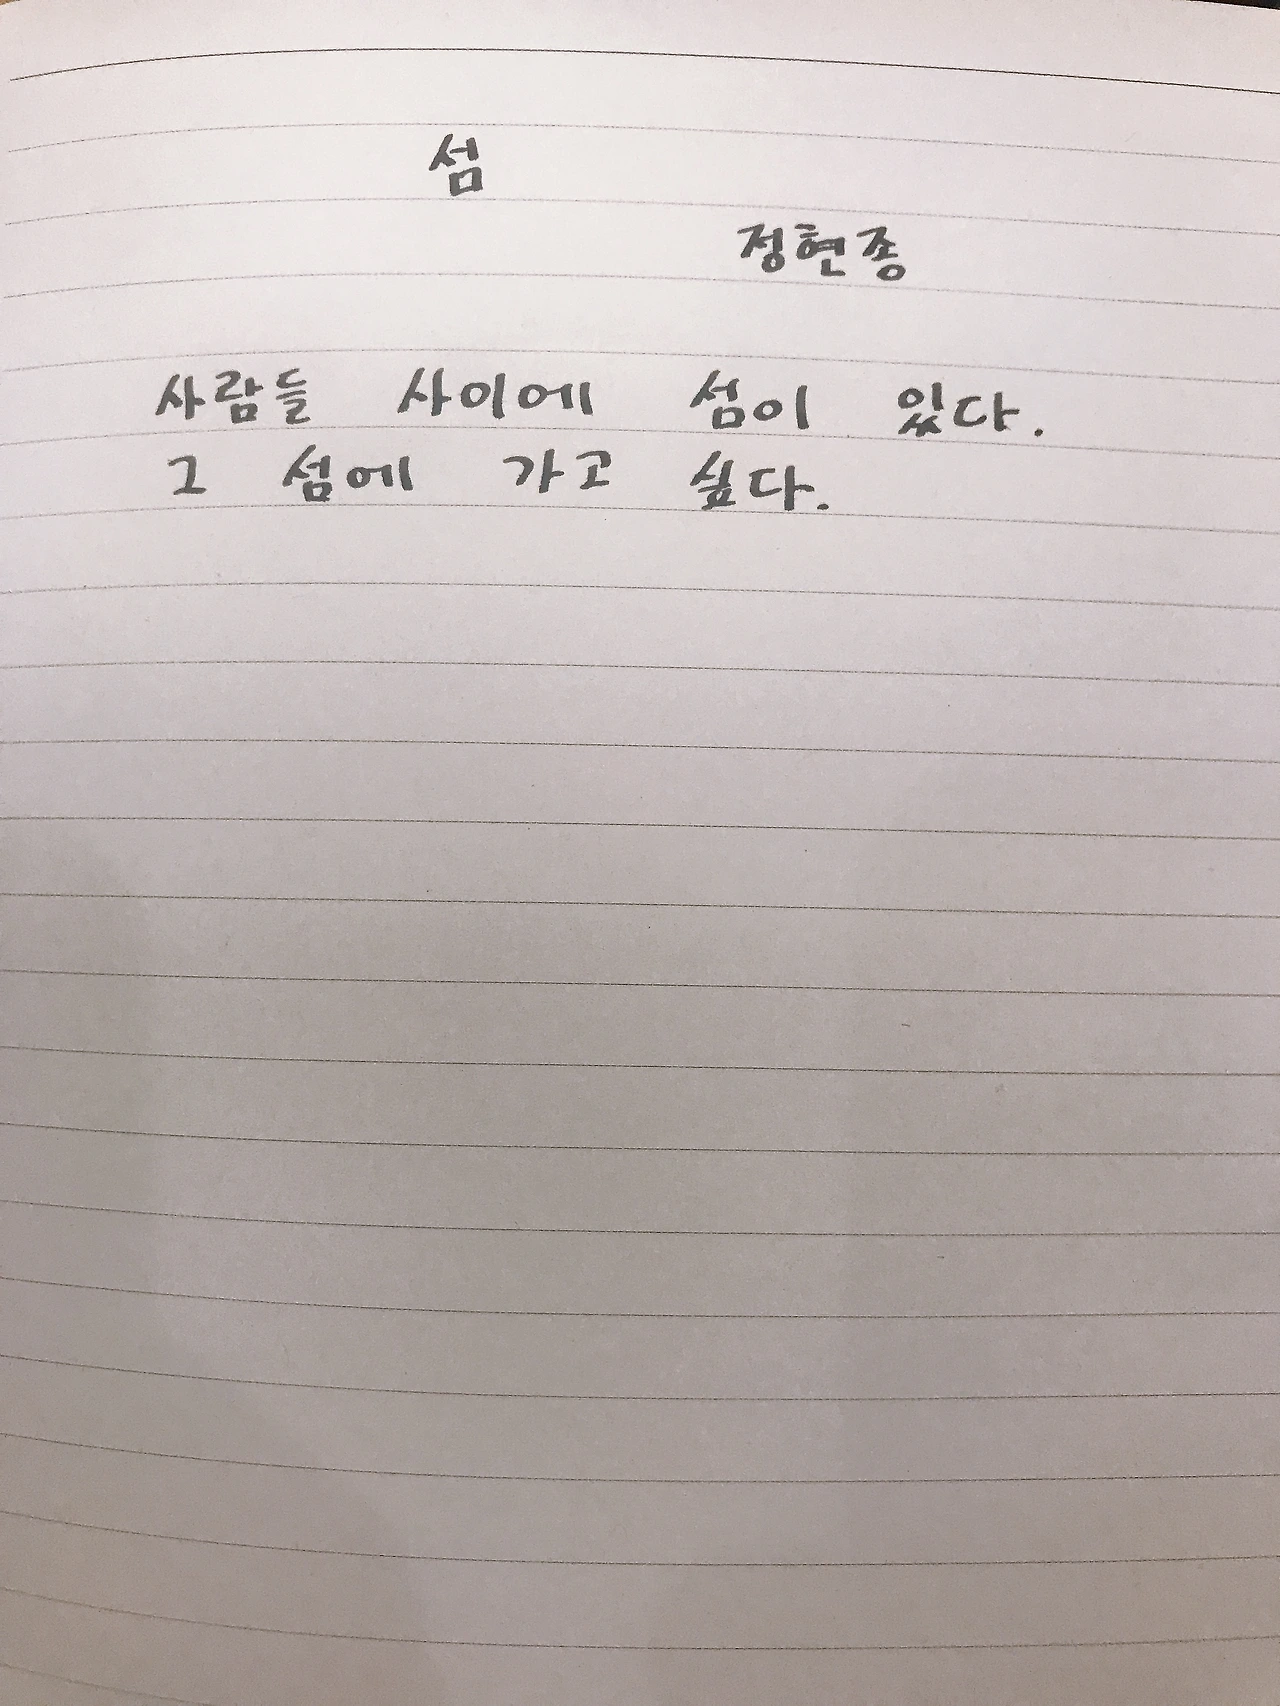 섬
정현종
사람들 사이에 섬이 있다.
그 섬에 가고 싶다.